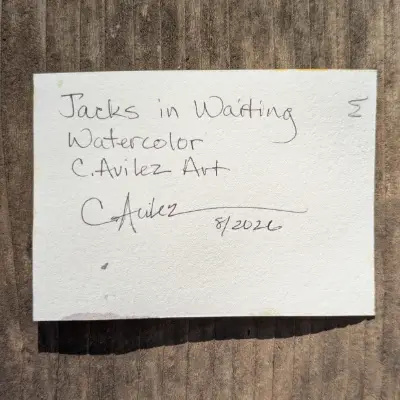 Jacks in Waiting
Watercolor
C. Avilez Art
C. Avilez
8/2026